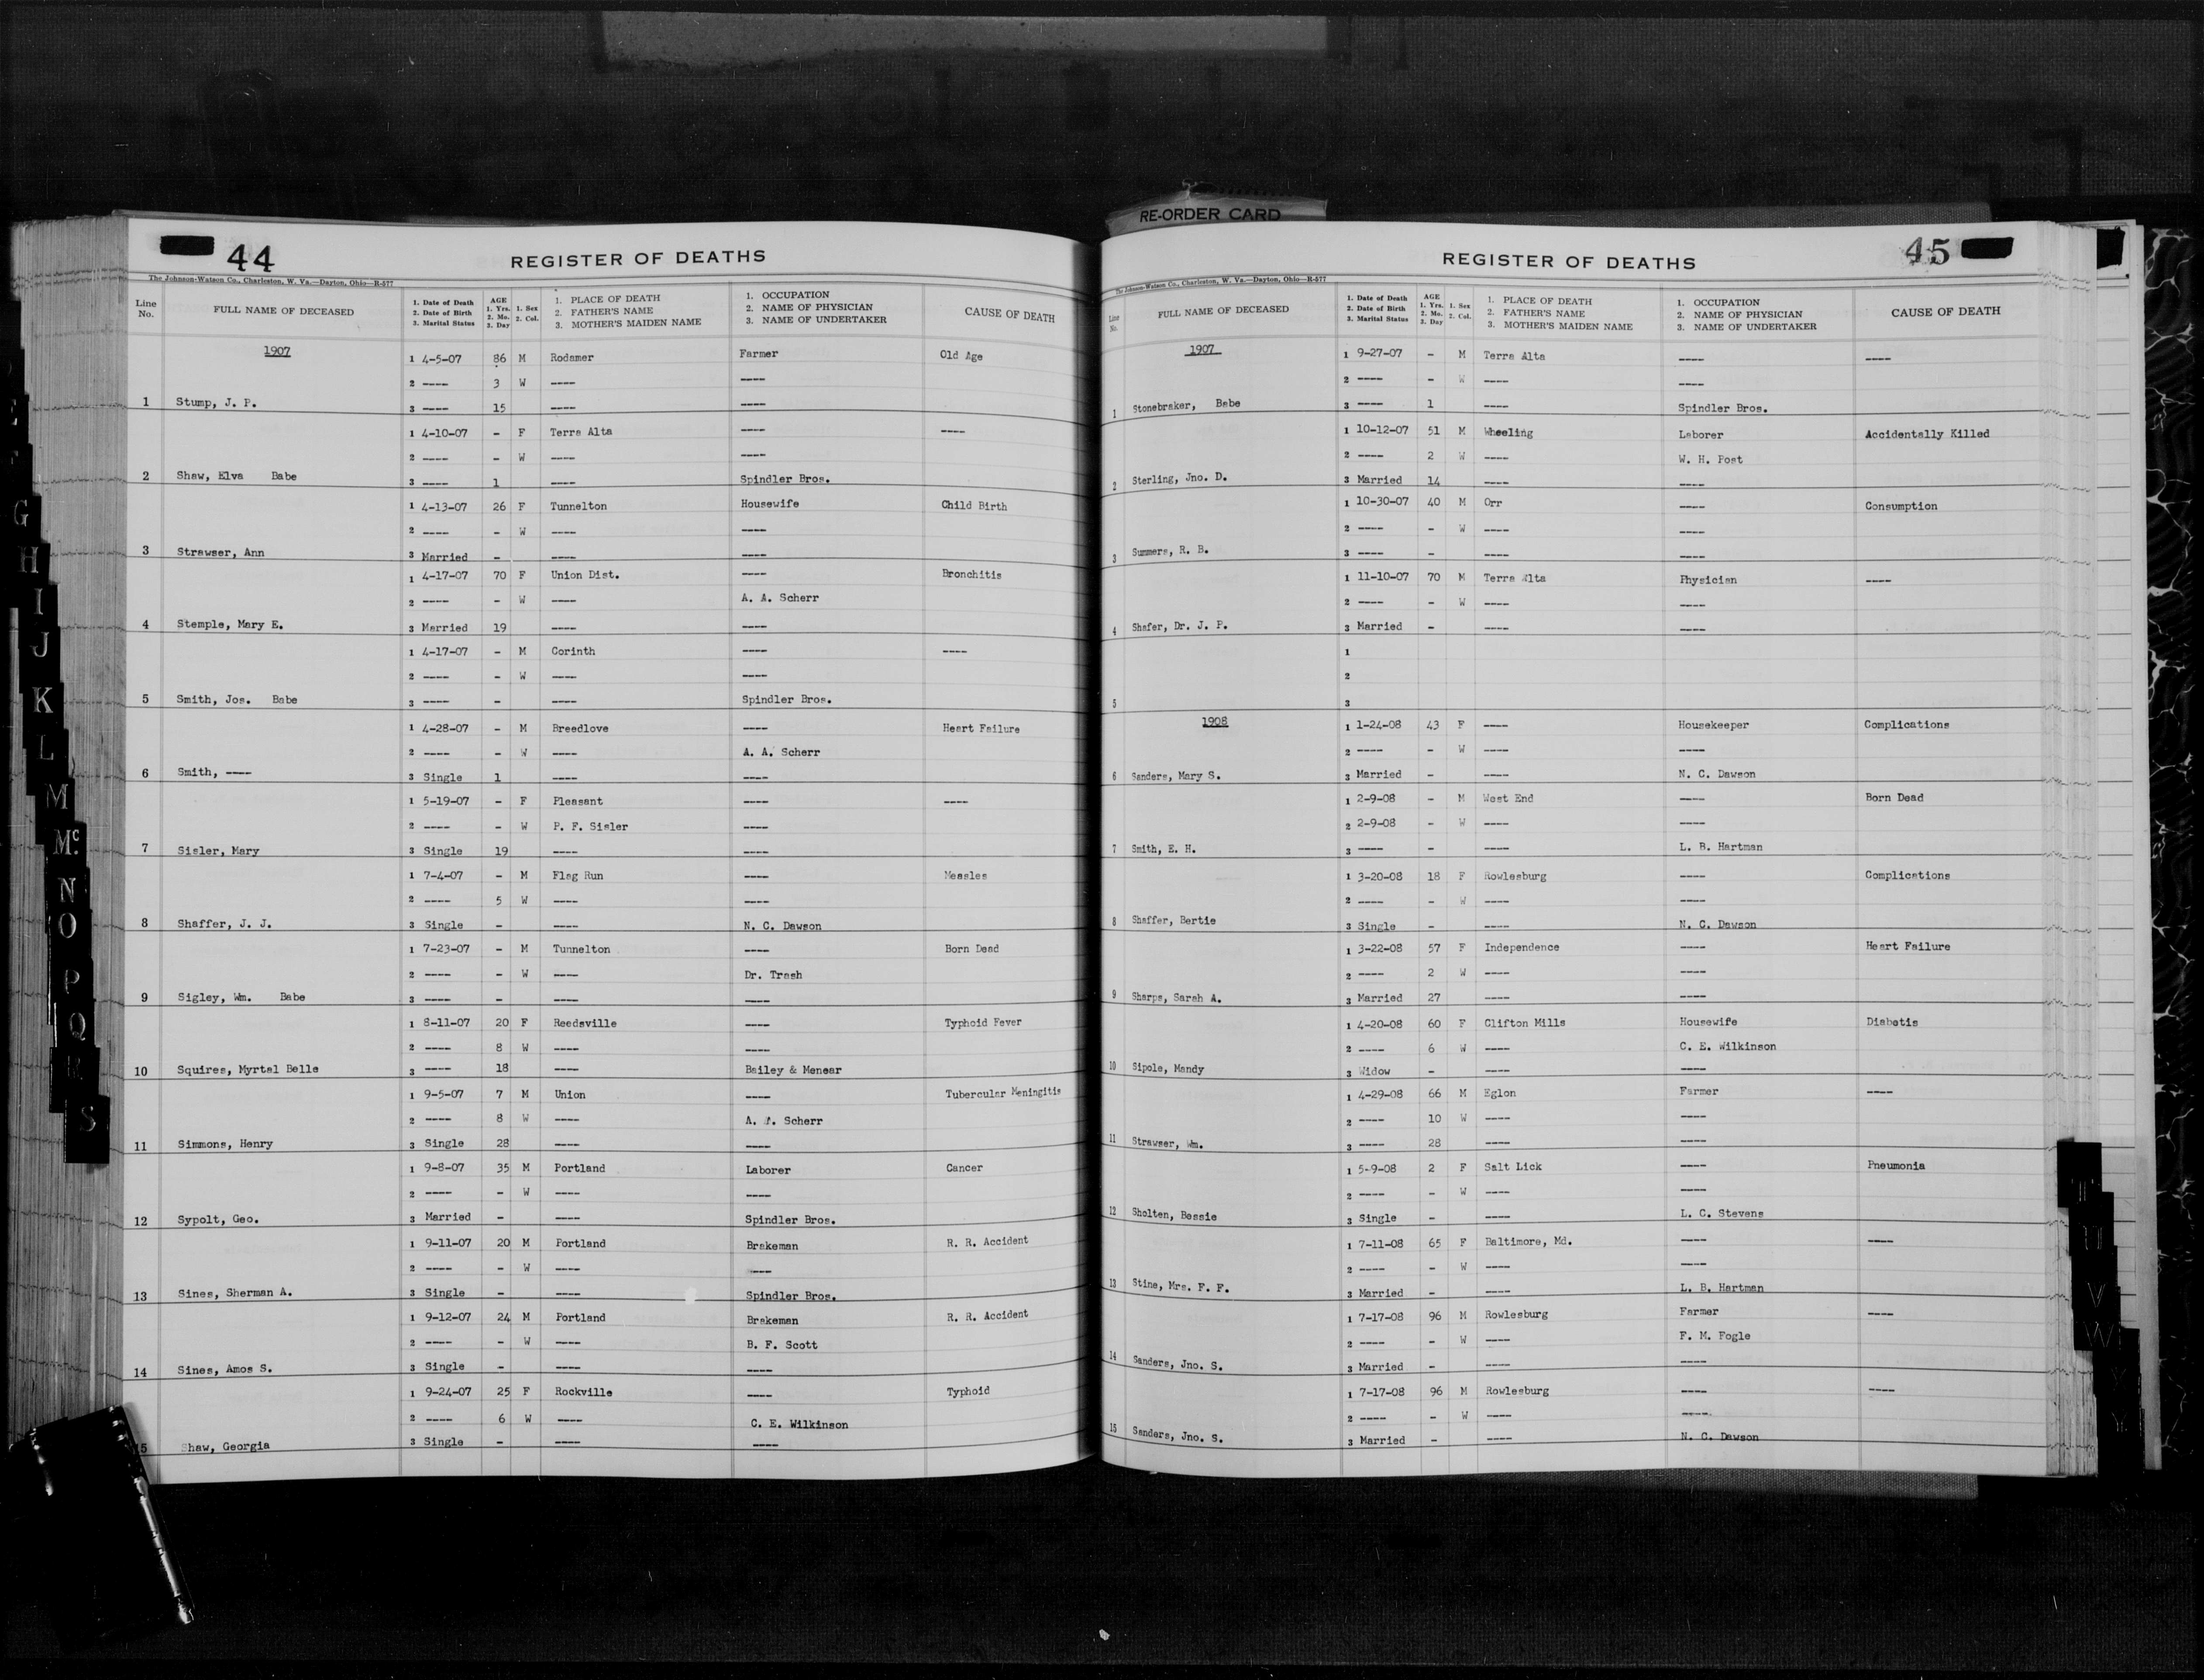 RE-ORDER CARD
44
REGISTER OF DEATHS
The Johnson-Watson Co., Charleston, W. Va.—Dayton, Ohio—R-577
Line No. FULL NAME OF DECEASED 1. Date of Death 2. Date of Birth 3. Marital Status AGE 1. Yrs. 2. Mo. 3. Day 1. Sex 2. Col. 1. PLACE OF DEATH 2. FATHER'S NAME 3. MOTHER'S MAIDEN NAME 1. OCCUPATION 2. NAME OF PHYSICIAN 3. NAME OF UNDERTAKER CAUSE OF DEATH
1907 1 4-5-07 86 M Rodamer Farmer Old Age
2 ---- 3 W ---- ----
1 Stump, J. P. 3 ---- 15 ---- ----
1 4-10-07 - F Terra Alta ---- ----
2 ---- - W ---- ----
2 Shaw, Elva Babe 3 ---- 1 ---- Spindler Bros.
1 4-13-07 26 F Tunnelton Housewife Child Birth
2 ---- - W ---- ----
3 Strawser, Ann 3 Married - ---- ----
1 4-17-07 70 F Union Dist. ---- Bronchitis
2 ---- - W ---- A. A. Scherr
4 Stemple, Mary E. 3 Married 19 ---- ----
1 4-17-07 - M Corinth ---- ----
2 ---- - W ---- ----
5 Smith, Jos. Babe 3 ---- - ---- Spindler Bros.
1 4-28-07 - M Breedlove ---- Heart Failure
2 ---- - W ---- A. A. Scherr
6 Smith, ---- 3 Single 1 ---- ----
1 5-19-07 - F Pleasant ---- ----
2 ---- - W P. F. Sisler ----
7 Sisler, Mary 3 Single 19 ---- ----
1 7-4-07 - M Flag Run ---- Measles
2 ---- 5 W ---- ----
8 Shaffer, J. J. 3 Single - ---- N. C. Dawson
1 7-23-07 - M Tunnelton ---- Born Dead
2 ---- - W ---- Dr. Trash
9 Sigley, Wm. Babe 3 ---- - ---- ----
1 8-11-07 20 F Reedsville ---- Typhoid Fever
2 ---- 8 W ---- ----
10 Squires, Myrtal Belle 3 ---- 18 ---- Bailey & Menear
1 9-5-07 7 M Union ---- Tubercular Meningitis
2 ---- 8 W ---- A. A. Scherr
11 Simmons, Henry 3 Single 28 ---- ----
1 9-8-07 35 M Portland Laborer Cancer
2 ---- - W ---- ----
12 Sypolt, Geo. 3 Married - ---- Spindler Bros.
1 9-11-07 20 M Portland Brakeman R. R. Accident
2 ---- - W ---- ----
13 Sines, Sherman A. 3 Single - ---- Spindler Bros.
1 9-12-07 24 M Portland Brakeman R. R. Accident
2 ---- - W ---- B. F. Scott
14 Sines, Amos S. 3 Single - ---- ----
1 9-24-07 25 F Rockville ---- Typhoid
2 ---- 6 W ---- C. E. Wilkinson
15 Shaw, Georgia 3 Single - ---- ----
45
REGISTER OF DEATHS
The Johnson-Watson Co., Charleston, W. Va.—Dayton, Ohio—R-577
Line No. FULL NAME OF DECEASED 1. Date of Death 2. Date of Birth 3. Marital Status AGE 1. Yrs. 2. Mo. 3. Day 1. Sex 2. Col. 1. PLACE OF DEATH 2. FATHER'S NAME 3. MOTHER'S MAIDEN NAME 1. OCCUPATION 2. NAME OF PHYSICIAN 3. NAME OF UNDERTAKER CAUSE OF DEATH
1907 1 9-27-07 - M Terra Alta ---- ----
2 ---- - W ---- ----
1 Stonebraker, Babe 3 ---- 1 ---- Spindler Bros.
1 10-12-07 51 M Wheeling Laborer Accidentally Killed
2 ---- 2 W ---- W. H. Post
2 Sterling, Jno. D. 3 Married 14 ---- ----
1 10-30-07 40 M Orr ---- Consumption
2 ---- - W ---- ----
3 Summers, R. B. 3 ---- - ---- ----
1 11-10-07 70 M Terra Alta Physician ----
2 ---- - W ---- ----
4 Shafer, Dr. J. P. 3 Married - ---- ----
1
2
5 3
1908 1 1-24-08 43 F ---- Housekeeper Complications
2 ---- - W ---- ----
6 Sanders, Mary S. 3 Married - ---- N. C. Dawson
1 2-9-08 - M West End ---- Born Dead
2 2-9-08 - W ---- ----
7 Smith, E. H. 3 ---- - ---- L. B. Hartman
1 3-20-08 18 F Rowlesburg ---- Complications
2 ---- - W ---- ----
8 Shaffer, Bertie 3 Single - ---- N. C. Dawson
1 3-22-08 57 F Independence ---- Heart Failure
2 ---- 2 W ---- ----
9 Sharps, Sarah A. 3 Married 27 ---- ----
1 4-20-08 60 F Clifton Mills Housewife Diabetis
2 ---- 6 W ---- C. E. Wilkinson
10 Sipole, Mandy 3 Widow - ---- ----
1 4-29-08 66 M Eglon Farmer ----
2 ---- 10 W ---- ----
11 Strawser, Wm. 3 ---- 28 ---- ----
1 5-9-08 2 F Salt Lick ---- Pneumonia
2 ---- - W ---- ----
12 Sholten, Bessie 3 Single - ---- L. C. Stevens
1 7-11-08 65 F Baltimore, Md. ---- ----
2 ---- - W ---- ----
13 Stine, Mrs. F. F. 3 Married - ---- L. B. Hartman
1 7-17-08 96 M Rowlesburg Farmer ----
2 ---- - W ---- F. M. Fogle
14 Sanders, Jno. S. 3 Married - ---- ----
1 7-17-08 96 M Rowlesburg ---- ----
2 ---- - W ---- ----
15 Sanders, Jno. S. 3 Married - ---- N. C. Dawson
G
H
I
J
K
L
M
Mc
N
O
P
Q
R
S
T
U
V
W
Y